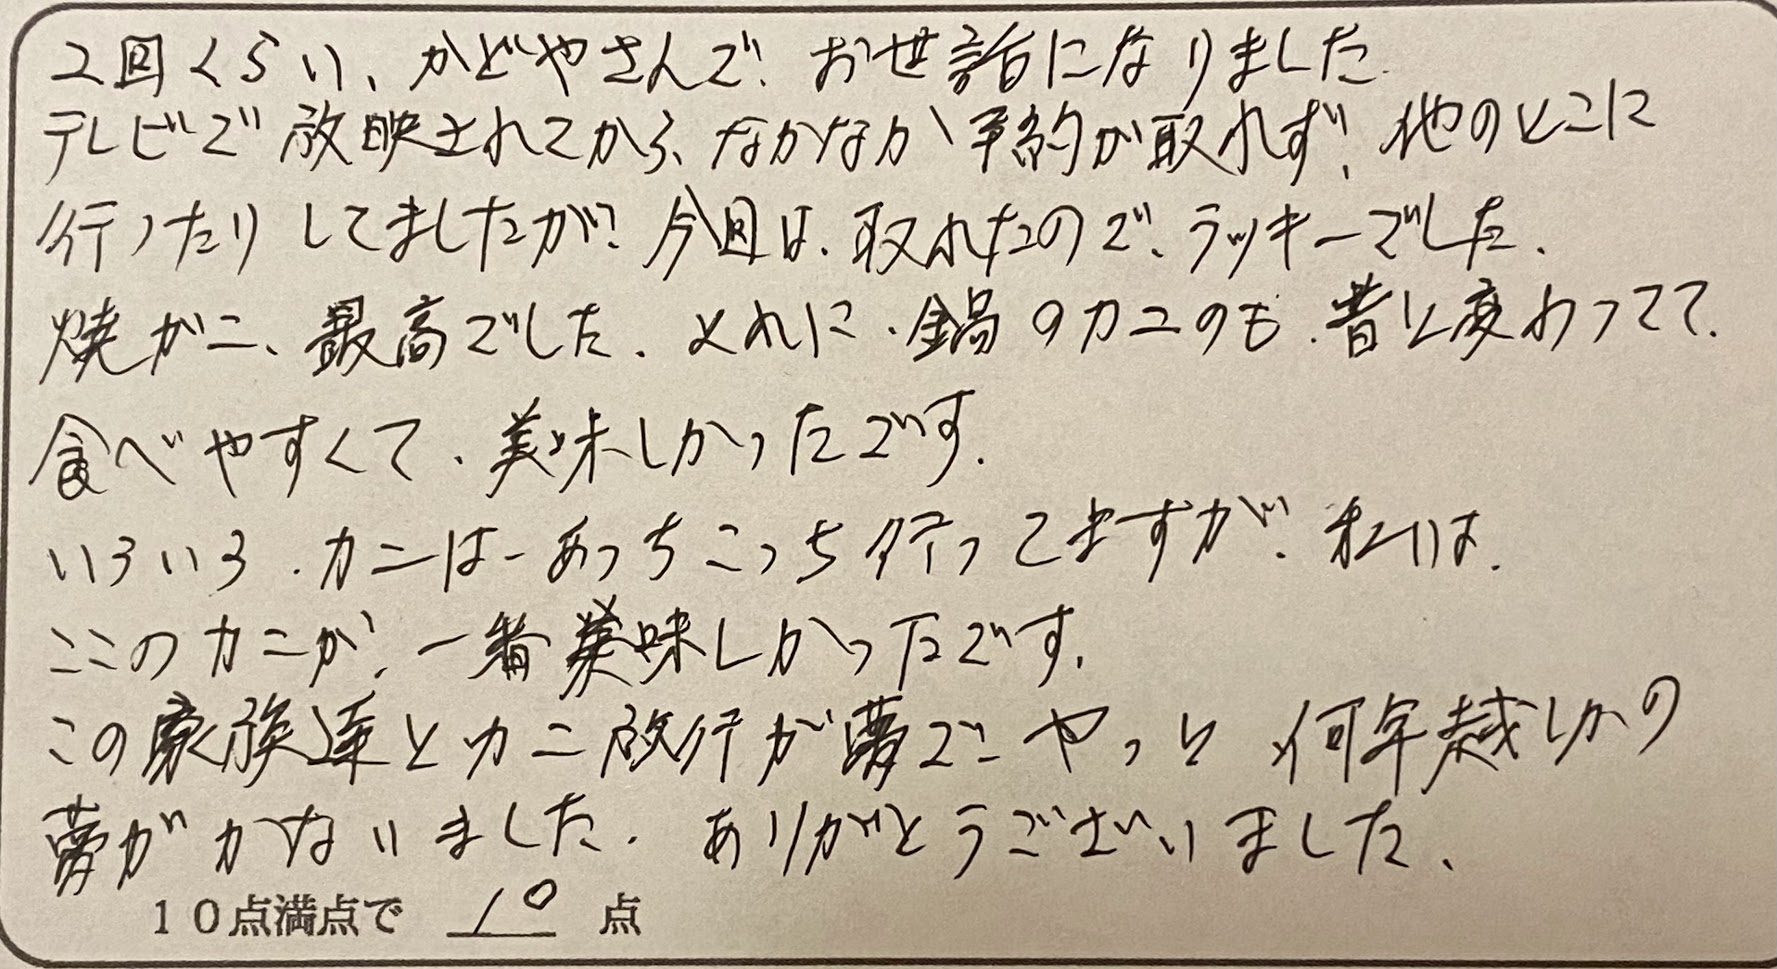 2回くらい、かどやさんで、お世話になりました.
テレビで放映されてから、なかなか予約が取れず、他のとこに
行ったりしてましたが、今回は、取れたので、ラッキーでした.
焼がニ、最高でした. それに、鍋のカニのも、昔と変わってて.
食べやすくて、美味しかったです.
いろいろ、カニはあっちこっち行ってますが、私は.
ここのカニが、一番美味しかったです.
この家族達とカニ旅行が夢でやっと何年越しかの
夢がかないました. ありがとうございました、
10点満点で 10 点